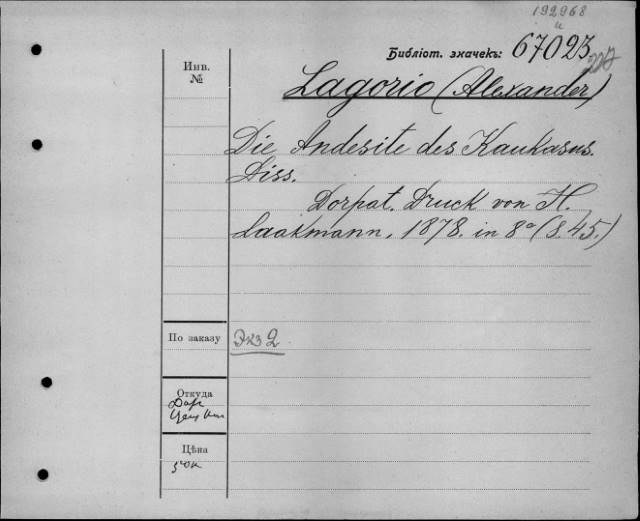 192968
Библіот. значекъ: 67023
Инв.
№
Lagorio (Alexander)
Die Andesite des Kaukasus.
Diss.
Dorpat. Druck von H.
Laakmann, 1878. in 8° (S. 45.)
По заказу
Экз 2
Откуда
Дар
Цѣна
50к